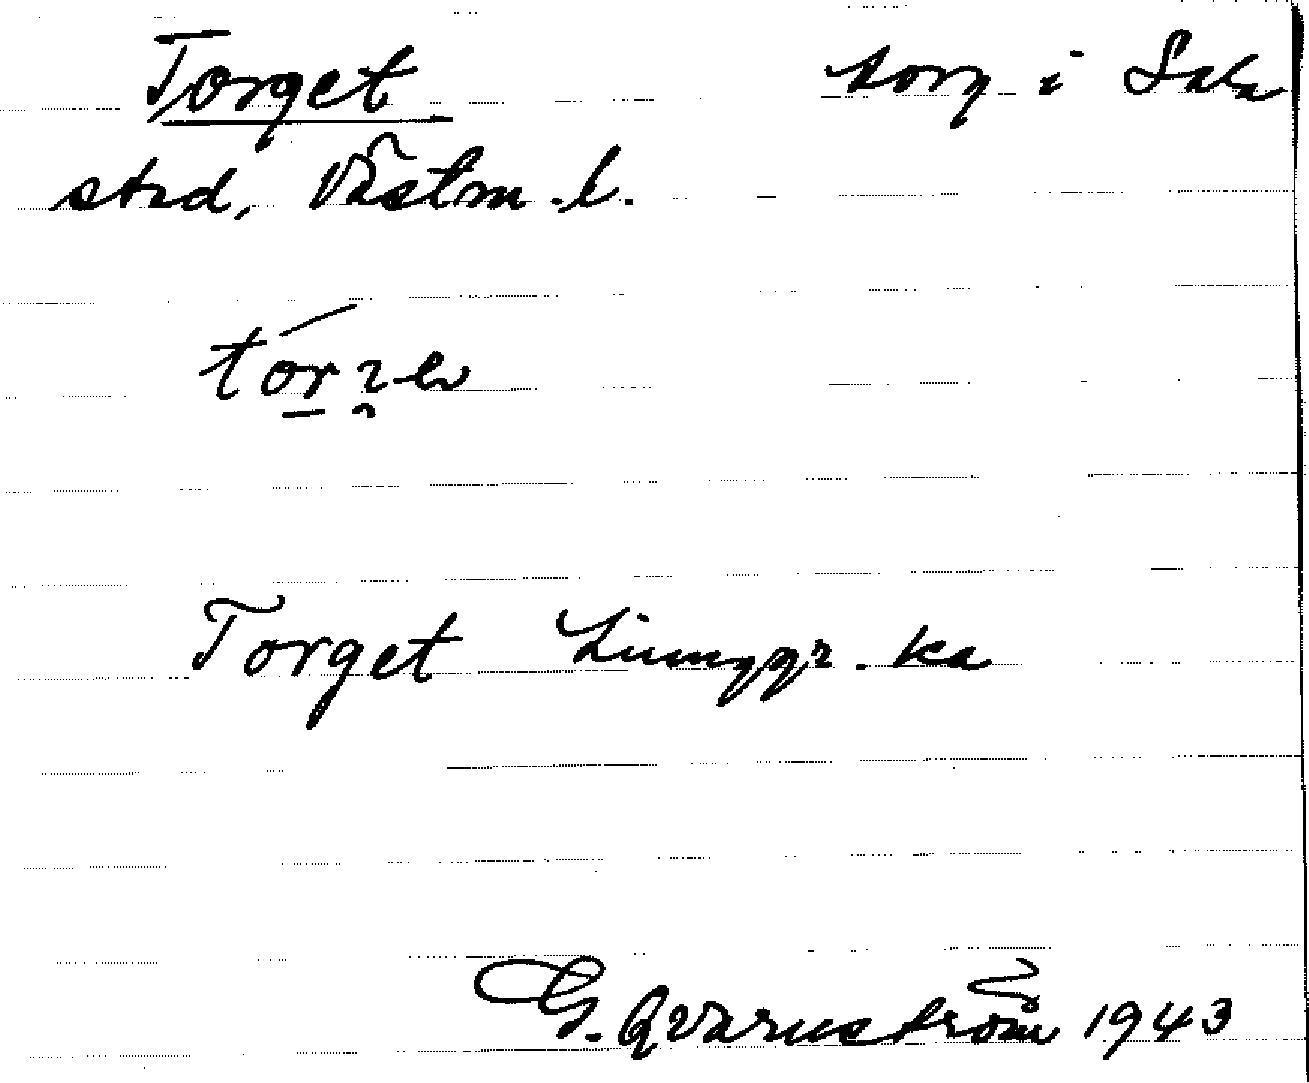 Torget torg i Sala
stad, Västm. l.
Torget Ljunggr. ka
G. Qvarnström 1943